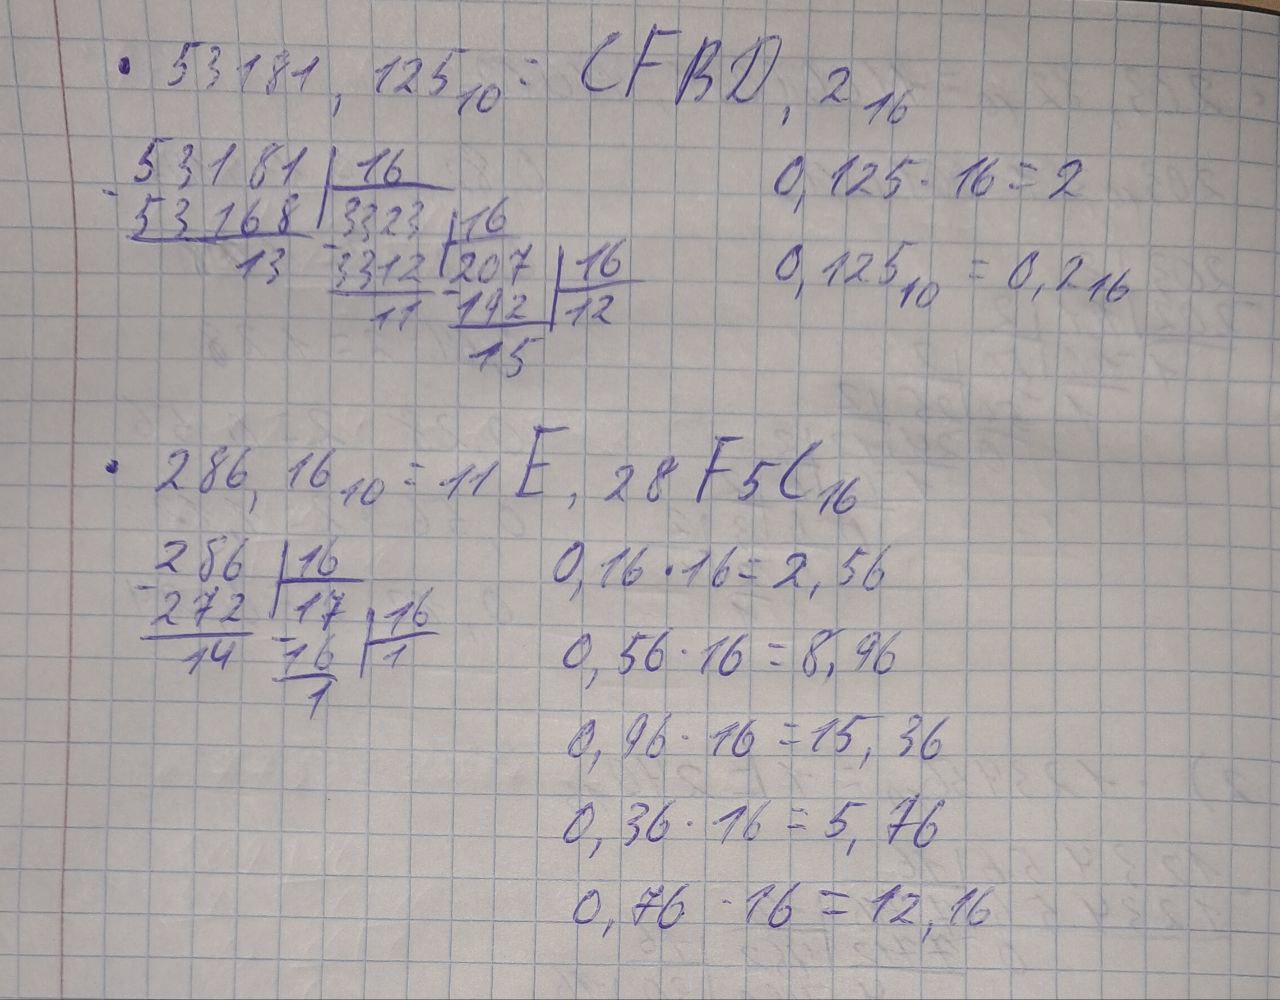 • 53181,125₁₀ = CFBD,2₁₆
53181 | 16
- 53168 | 3323 | 16
13 - 3312 | 207 | 16
11 - 192 | 12
15
0,125 · 16 = 2
0,125₁₀ = 0,2₁₆
• 286,16₁₀ = 11E,28F5C₁₆
286 | 16
- 272 | 17 | 16
14 - 16 | 1
1
0,16 · 16 = 2,56
0,56 · 16 = 8,96
0,96 · 16 = 15,36
0,36 · 16 = 5,76
0,76 · 16 = 12,16